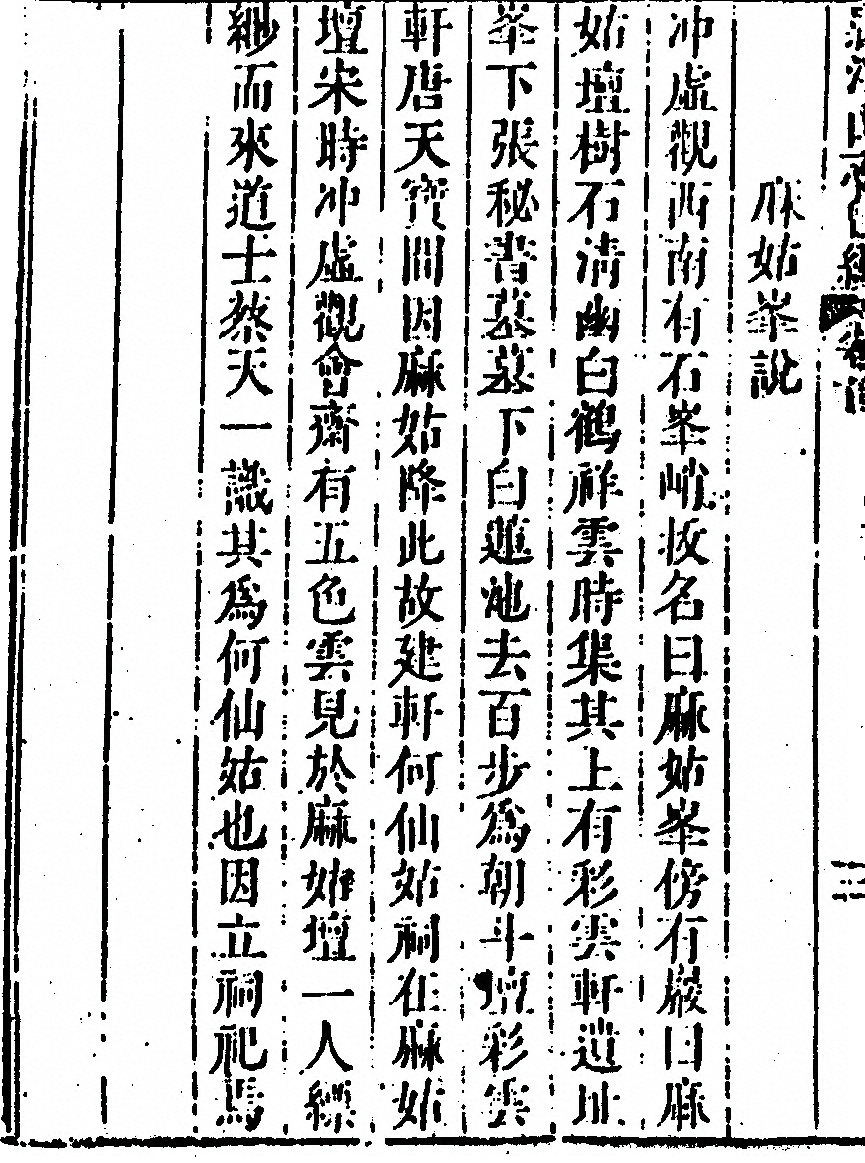 麻姑峯說
冲虛觀西南有石峯峭拔名曰麻姑峯傍有巖曰麻
姑壇樹石清幽白鶴祥雲時集其上有彩雲軒遺址
峯下張秘書墓墓下白蓮池去百步爲朝斗壇彩雲
軒唐天寶間因麻姑降此故建軒何仙姑祠在麻姑
壇宋時冲虛觀會齋有五色雲見於麻姑壇一人縹
緲而來道士蔡天一識其爲何仙姑也因立祠祀焉